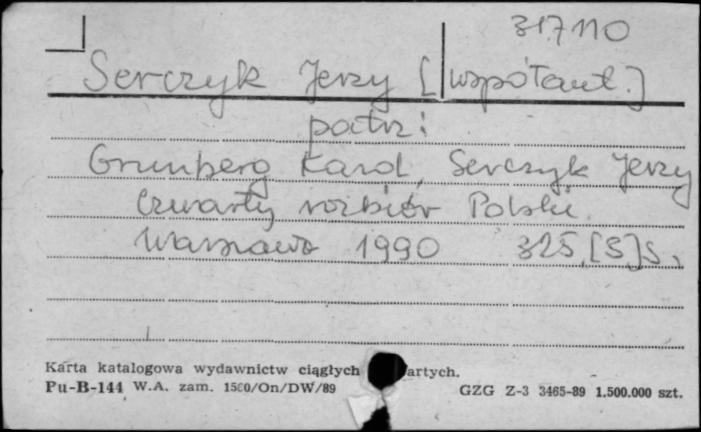 317110
Serczyk Jerzy [współaut.]
patrz:
Grunberg Karol, Serczyk Jerzy
Czwarty rozbiór Polski.
Warszawa 1990 325,[3]s.
Karta katalogowa wydawnictw ciągłych artych.
Pu-B-144 W.A. zam. 1560/On/DW/89 GZG Z-3 3465-89 1.500.000 szt.